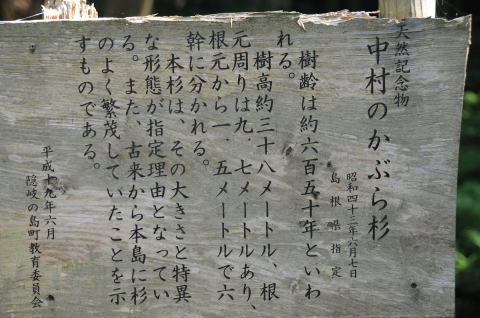 天然記念物
中村のかぶら杉
昭和四十三年六月七日
島根県指定
樹齢は約六百五十年といわ
れる。
樹高約三十八メートル、根
元周りは九．七メートルあり、
根元から一．五メートルで六
幹に分かれる。
本杉は、その大きさと特異
な形態が指定理由となってい
る。また、古来から本島に杉
のよく繁茂していたことを示
すものである。
平成十九年六月
隠岐の島町教育委員会